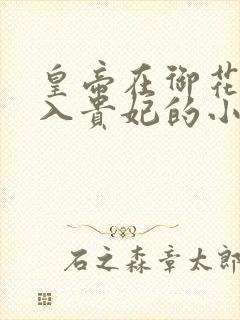 皇帝在御花
入贵妃的小
石之森章太郎